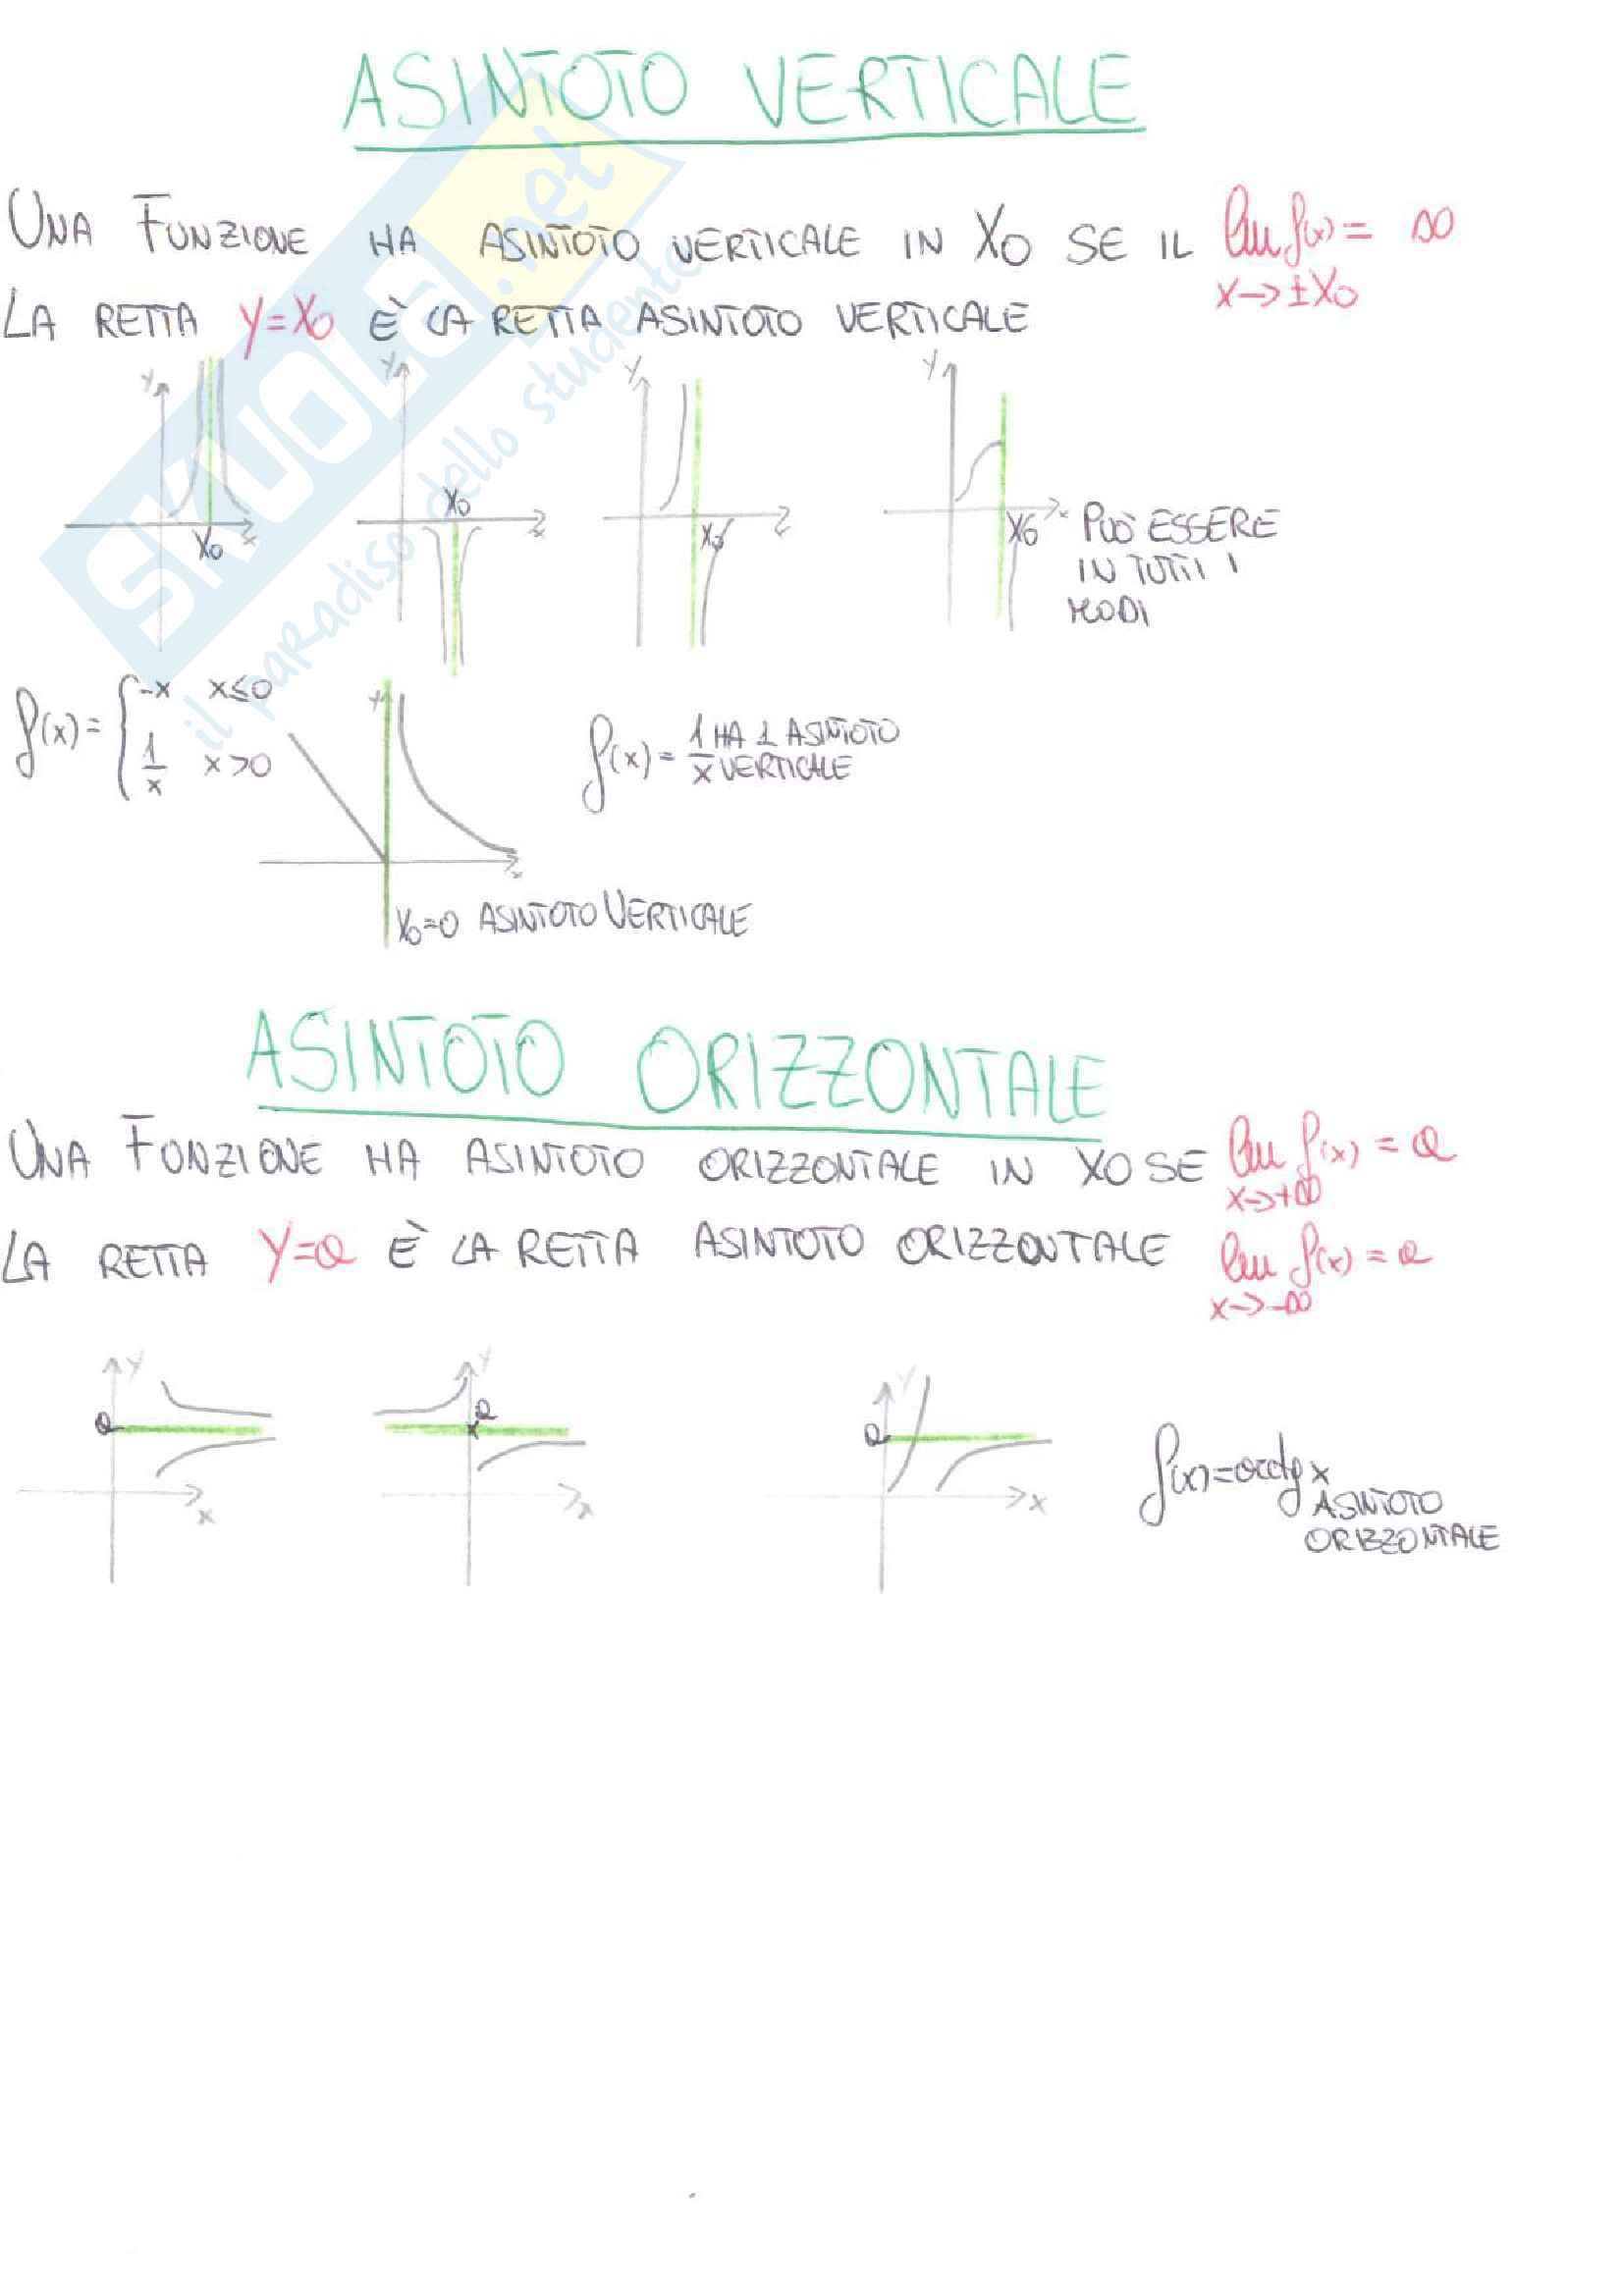 ASINTOTO VERTICALE
UNA FUNZIONE HA ASINTOTO VERTICALE IN X0 SE IL lim f(x) = ∞
x→±X0
LA RETTA y=X0 È LA RETTA ASINTOTO VERTICALE
y y y y
X0 x X0 x X0 x X0 x PUÒ ESSERE
IN TUTTI I
MODI
f(x) = { -x x≤0
1/x x>0
y
x
f(x) = 1/x HA 1 ASINTOTO
VERTICALE
X0=0 ASINTOTO VERTICALE
ASINTOTO ORIZZONTALE
UNA FUNZIONE HA ASINTOTO ORIZZONTALE IN X0 SE lim f(x) = a
x→+∞
LA RETTA Y=a È LA RETTA ASINTOTO ORIZZONTALE lim f(x) = a
x→-∞
y y y
a a a
x x x
f(x)=arctg x
ASINTOTO
ORIZZONTALE
SKUOLA.net
il paradiso dello studente